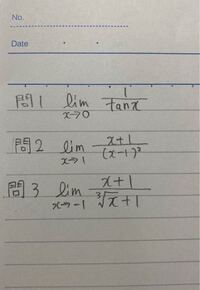 No.
Date
問1 lim x→0 1/tanx
問2 lim x→1 x+1/(x-1)²
問3 lim x→-1 x+1/∛x+1